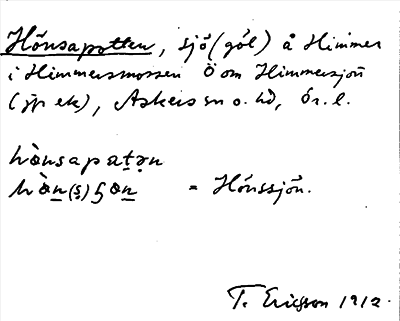 Hönsapotten, sjö (göl) å Himmer
i Himmersmossen Ö om Himmersjön
(jp ek), Askers sn o. hd, Ör. l.
hònsapatən
hòn(s)ʃon = Hönssjön.
T. Ericsson 1912.